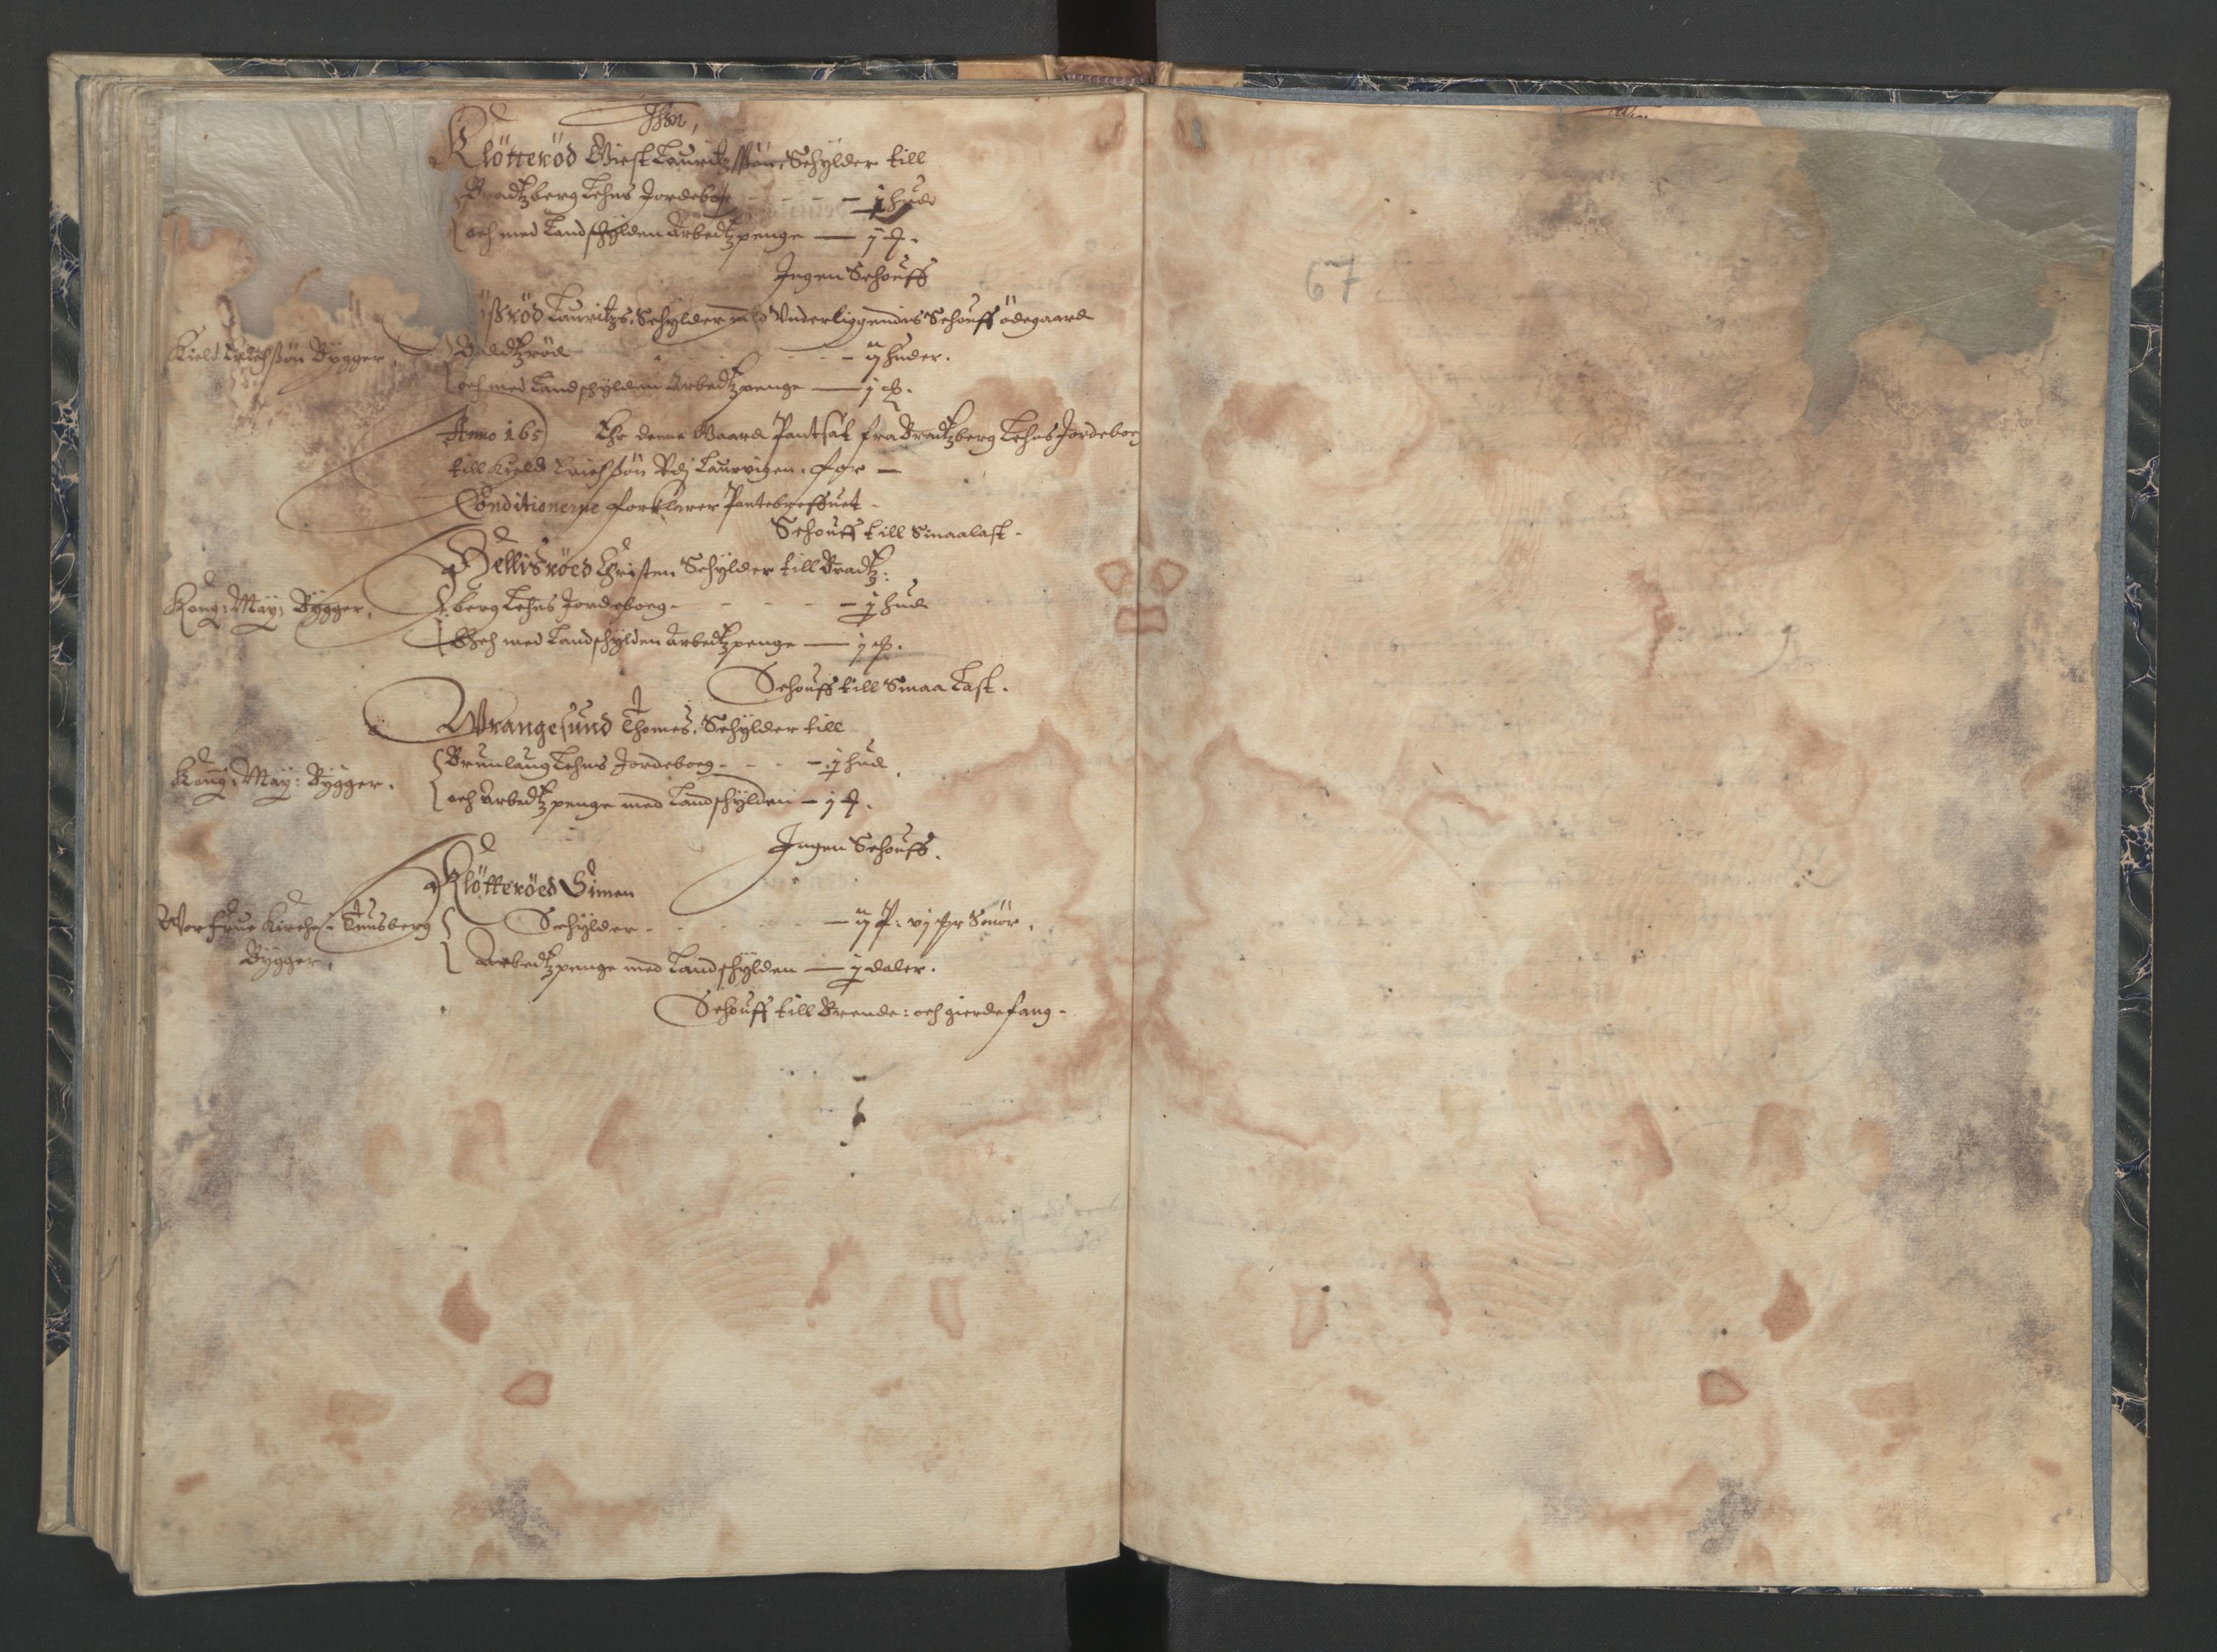 Kløtterød Giest Lauritzsøn Schylder till
Bradtzberg Lehns Jordebog - - - - j hud
och med Landschylden Arbedtzpenge — j
Ingen Schouff
Lauritz, Schylder Underliggendis Schouff ödegaard
Kield Erichßøn Bygger.
- - - ij huder.
och med Landschylden Arbedtzpenge — j
Anno 165 Ehr denne Gaard Pantsat fra Bradtzberg Lehns Jordebog
till Kield Erichßøn Laurvigen. for —
Conditionerne forklarer Pantebreffuet -
Schouff till Smaalast -
Hellisröed Christen Schylder till Bradtz:
Kong: May: Bygger.
berg Lehns Jordeboeg - - - - - j hud
Och med Landschylden Arbedtzpenge — j
Schouff till Smaa Last.
Wrangesund Thomes. Schylder till
Brunlaug Lehns Jordeboeg - - - - j hud
Kong: May: Bygger.
och Arbedtzpenge med Landschylden - j
Ingen Schouff.
Kløtteröed Simen
Vor frue Kirche i Tunsberg
Bygger,
Schylder - - - ij smör.
Arbedtzpenge med Landschylden — j daler.
Schouff till Brende: och gierdefang -
67